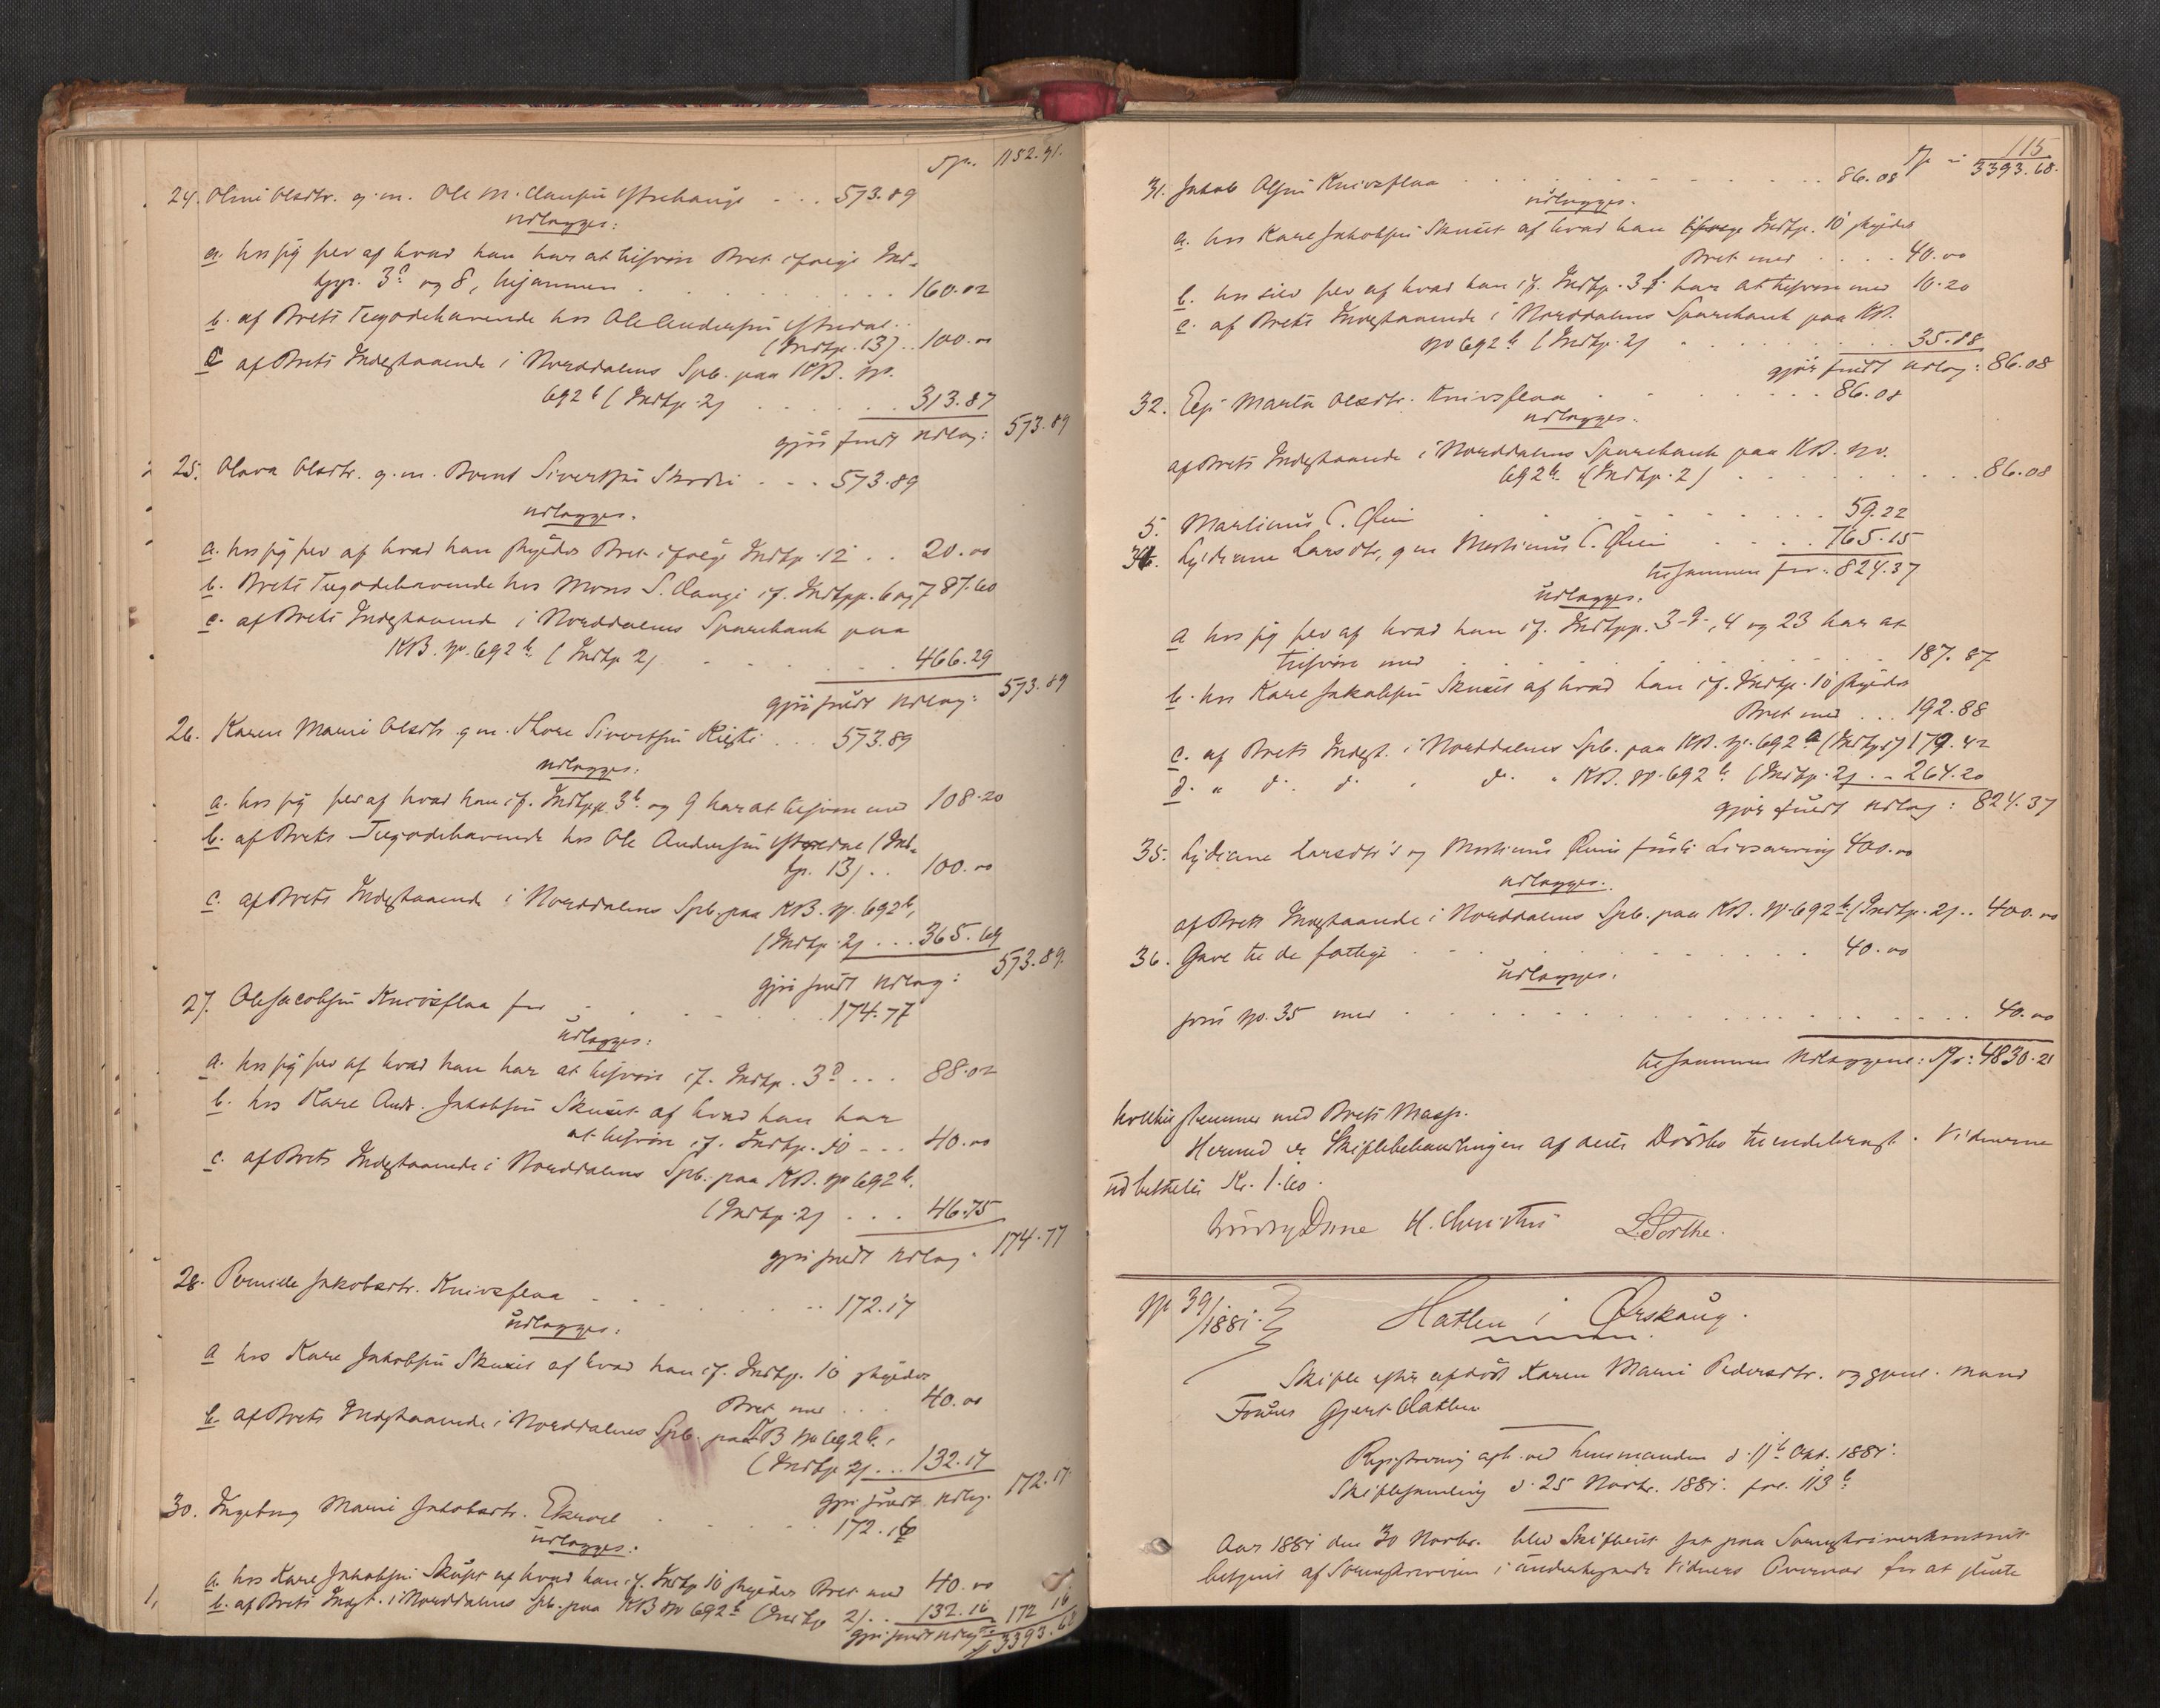 Sp. 1152.91.
24. Oline Olsdtr. g. m. Ole M. Clausen Ytrehauge . . . 573.89
udlægges:
a. hos sig selv af hvad han har at tilsvare Boet ifølge Ind-
tgp. 3 og 8, tilsammen . . . 160.02
b. af Boets Tilgodehavende hos Ole Andersen Ytredal . .
(Indtp. 13) . . 100.00
c af Boets Indestaaende i Norddalens Spb. paa KB. No.
692 b (Indtp. 2) . . . 313.87
gjør fuldt Udlæg: 573.89
25. Olava Olsdtr. g. m. Bernt Sivertsen Skodje . . . 573.89
udlægges.
a. hos sig selv af hvad han skylder Boet ifølge Indtp. 12 . . 20.00
b. Boets Tilgodehavende hos Mons S. Lange if. Indtpp. 6 og 7 87.60
c. af Boets Indestaaende i Norddalens Sparebank paa
KB. No. 692 b. (Indtp 2) . . . 466.29
gjør fuldt Udlæg: 573.89
26. Karen Marie Olsdtr. g. m. Thore Sivertsen . . . 573.89
udlægges:
a. hos sig selv af hvad han if. Indtpp. 3 b og 9 har at tilsvare med 108.20
b. af Boets Tilgodehavende hos Ole Andersen Ytredal (Ind-
tp. 13) . . 100.00
c. af Boets Indestaaende i Norddalens Spb. paa KB. No. 692 b,
(Indtp. 2) . . . 365.69
gjør fuldt Udlæg: 573.89.
27. Ole Jacobsen Knivsflaa for . . . 174.77
udlægges:
a. hos sig selv af hvad han har at tilsvare if. Indtp. 3 . . . 88.02
b. hos Kare Andr. Jakobsen af hvad han har
at tilsvare if. Indtp. 10 . . . 40.00
c. af Boets Indestaaende i Norddalens Spb. paa KB. No 692 b.
(Indtp. 2) . . . 46.75
gjør fuldt Udlæg. 174.77
28. Pernille Jakobsdtr. Knivsflaa . . . 172.17
udlægges:
a hos Kare Jakobsen af hvad han if. Indtp. 10 skylder
Boet med . . . 40.00
b. af Boets Indestaaende i Norddalens Spb. paa KB No 692 b.
(Indtp 2) . . . 132.17
gjør fuldt Udlæg. 172.17
30. Ingeborg Marie Jakobsdtr. . . . 172.16
udlægges:
a. hos Kare Jakobsen af hvad han if. Indtp 10 skylder Boet med 40.00
b. af Boets Indest. i Norddalens Spb. paa KB No 692 b (Indtp 2) . . 132.16 172 16
gjør fuldt Udlæg 3393.68
115
Sp - 3393.68.
31. Jakob Olsen Knivsflaa . . . 86.08
udlægges.
a. hos Kare Jakobsen af hvad han ifølge Indtp. 10 skylder
Boet med . . . 40.00
b. hos selv af hvad han if. Indtp. 3 f. har at tilsvare med 10.20
c. af Boets Indestaaende i Norddalens Sparebank paa KB.
No 692 b (Indtp. 2) . . . 35.88
gjør fuldt Udlæg: 86.08
32. Marta Olsdtr. Knivsflaa . . . 86.08
udlægges.
af Boets Indestaaende i Norddalens Sparebank paa KB. No.
692 b (Indtp. 2) . . . 86.08
5. Martinus C. Øien . . . 59.22
34. Lydianne Larsdtr, g m Martinus C. Øien . . . 765.15
tilsammen for: 824.37
udlægges.
a hos sig selv af hvad han if. Indtpp. 3 g, 4 og 23 har at
tilsvare med . . . 187.87
b. hos Kare Jakobsen af hvad han if. Indtp. 10 skylder
Boet med . . . 192.88
c. af Boets Indest. i Norddalens Spb. paa KB. No. 692 a (Indtp 1) 179.42
d. " d. d. " d. " KB. No. 692 b (Indtp. 2) . - 264.20
gjør fuldt Udlæg: 824.37
35. Lydianne Larsdtr's og Martinus Øiens Livsarving 400.00
udlægges.
af Boets Indestaaende i Norddalens Spb. paa KB. No. 692 b (Indtp. 2) . . 400.00
36. Gave til de fattige . . . 40.00
udlægges.
som No. 35 med . . . 40.00
tilsammen Udlæggene: Sp: 4830.21
hvilket stemmer med Boets Masse.
Hermed er Skiftebehandlingen af dette Dødsbo tilendebragt. Vidnerne
udbetaltes Kr. 1.60.
H. Christie L. Sorthe.
No 39/1881.
Hatlen i Ørskoug.
Skifte efter afdøde Karen Marie Pedersdtr. og gjenl. Mand
Tomas Gjert Hatlen
Registrering afh. ved Lensmanden d. 11 te Okt. 1881.
Skiftesamling d. 25 Novbr. 1881. fol. 113 b
Aar 1881 den 30 Novbr. blev Skifteret sat paa Sorenskriverkontoret
betjent af Sorenskriveren i undertegnede Vidners Overvær for at slutte